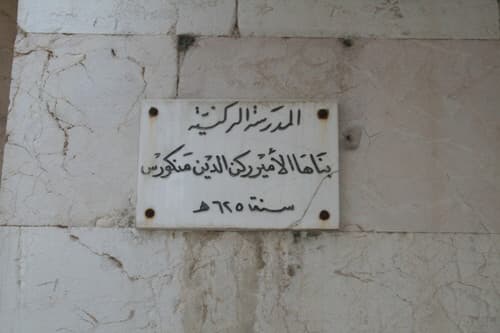 المدرسة الركنية
بناها الأمير ركن الدين منكورس
سنة ٦٢٥ هـ